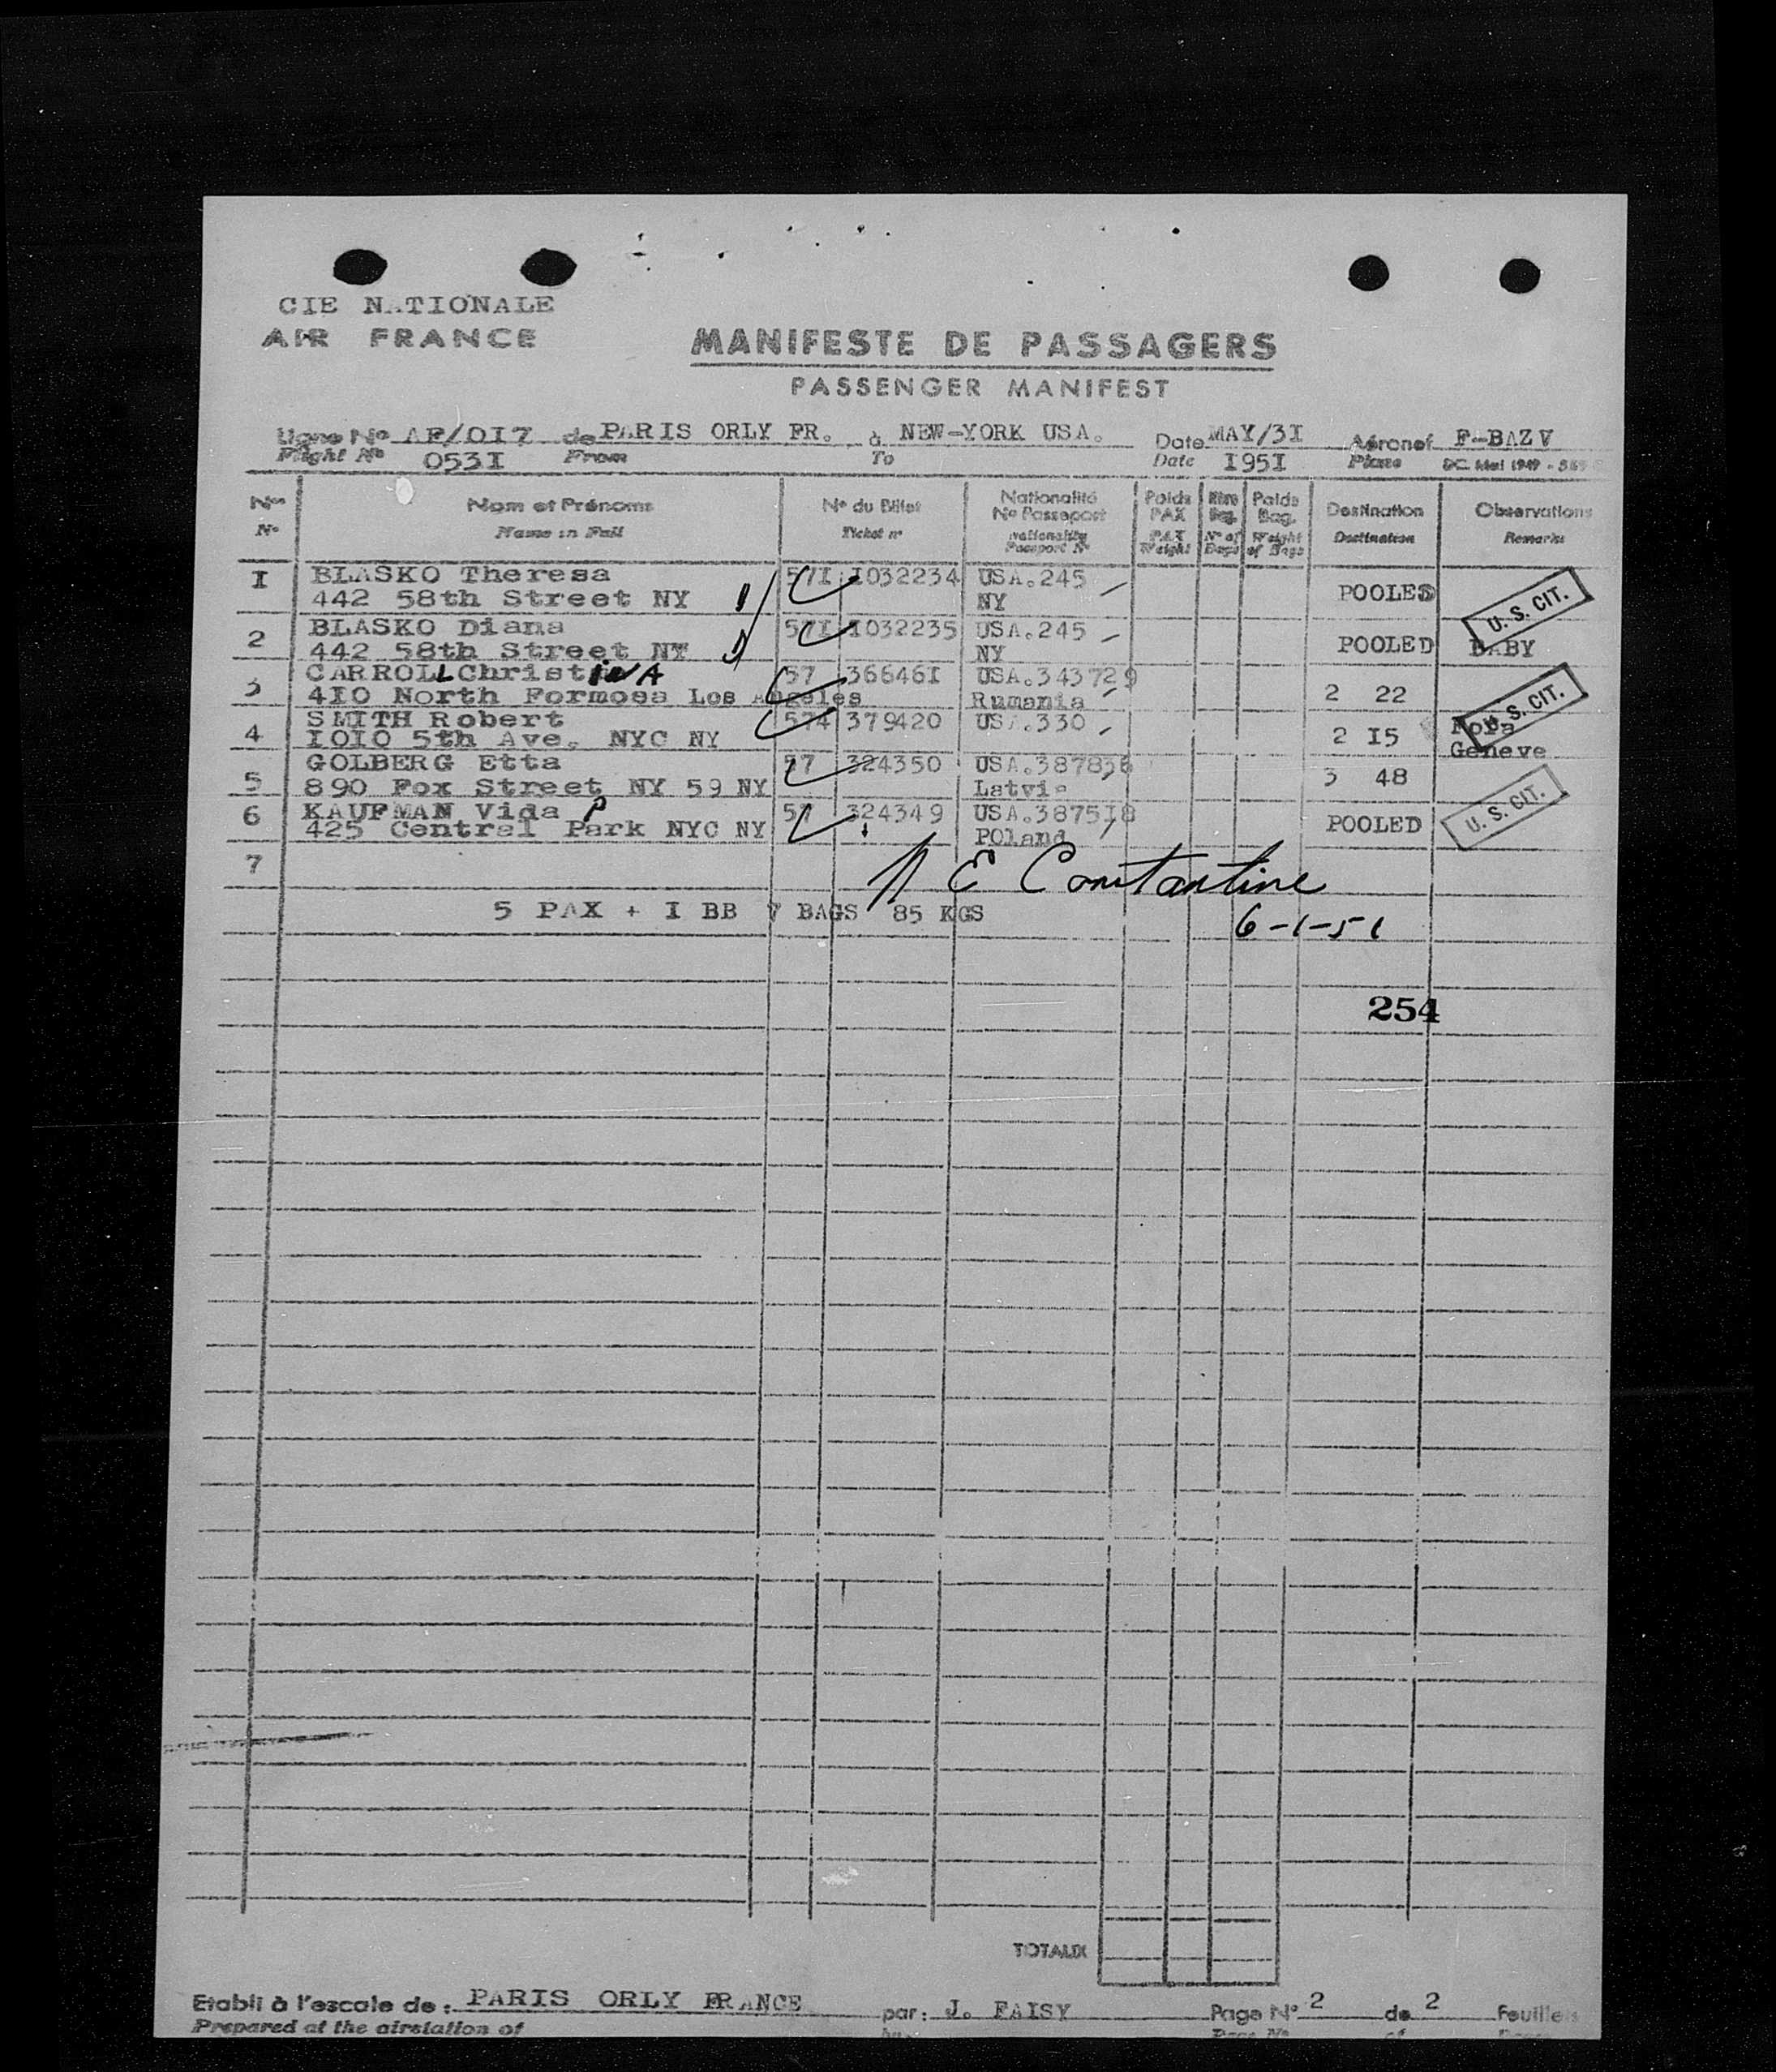 CIE N.TIONALE
AIR FRANCE
MANIFESTE DE PASSAGERS
PASSENGER MANIFEST
Ligne No AF/OI7 de PARIS ORLY FR. à NEW-YORK USA. Date MAY/3I Aéronef F-BAZV
Flight No 053I From To Date I95I Plane
Nos Nom et Prénoms No du Billet Nationalité No Passeport Poids PAX Nbre Bag. Poids Bag. Destination Observations
No Name in Full Ticket no Nationality Passport No PAX Weight No of Bags Weight of Bags Destination Remarks
I BLASKO Theresa 57I I032234 USA.245 POOLED
442 58th Street NY NY U. S. CIT.
2 BLASKO Diana 57I I032235 USA.245 POOLED BABY
442 58th Street NY NY
3 CARROLL Christina 57 36646I USA.343729 2 22
4I0 North Formosa Los Angeles Rumania U. S. CIT.
4 SMITH Robert 574 379420 USA.330 2 I5
I0I0 5th Ave. NYC NY Geneve
5 GOLBERG Etta 57 324350 USA.387836 3 48
890 Fox Street NY 59 NY Latvia
6 KAUFMAN Vida P 57 324349 USA.3875I8 POOLED U. S. CIT.
425 Central Park NYC NY POland
7
E Constantine
5 PAX + I BB 7 BAGS 85 KGS
6-1-51
254
TOTAUX
Etabli à l'escale de : PARIS ORLY FRANCE par : J. FAISY Page No 2 de 2 Feuilles
Prepared at the airstation of